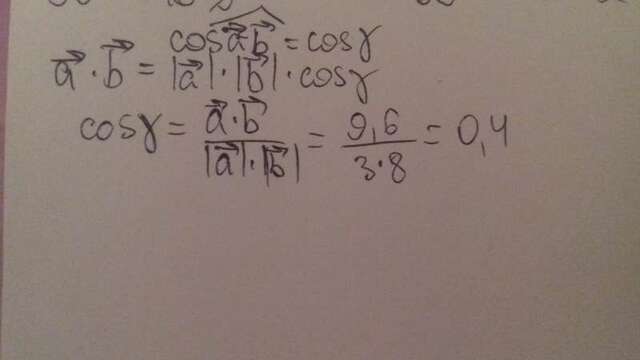 cos a⃗ b⃗ = cosγ
a⃗ · b⃗ = |a⃗| · |b⃗| · cosγ
cosγ = a⃗ · b⃗ / |a⃗| · |b⃗| = 9,6 / 3 · 8 = 0,4